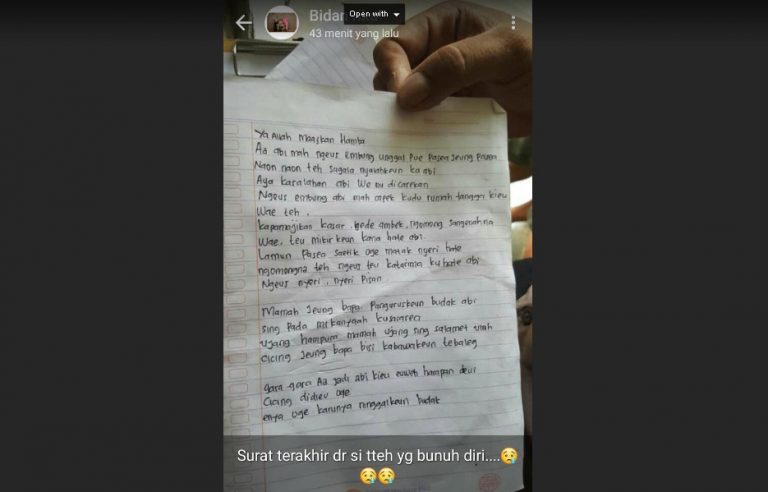 Bidan
Open with
43 menit yang lalu
Ya Allah Maafkan Hamba
Aa abi mah ngeus embung unggal Poe Pasea jeung Pasea
Naon naon teh sugala nyalahkeun ka abi
Aya kasalahan abi We nu dicarekan
Ngeus embung abi mah capek kudu rumah tangga kieu
Wae teh,
kapamajikan kasar, gede ambek, ngomong sangenahna
Wae, teu mikirkeun kana hate abi.
Lamun Pasea saetik oge matak nyeri hate
ngomongna teh ngeus teu katarima ku hate abi
Ngeus nyeri, nyeri Pisan.
Mamah jeung bapa Pangeruskeun budak abi
sing Pada
ujang hampura mamah ujang sing salamet ulah
cicing jeung bapa bisi kabawakeun
gara gara Aa jadi abi kieu euweuh hampan deui
Cicing didieu oge
enya oge karunya ninggalkeun budak
Surat terakhir dr si tteh yg bunuh diri....😢
😢😢